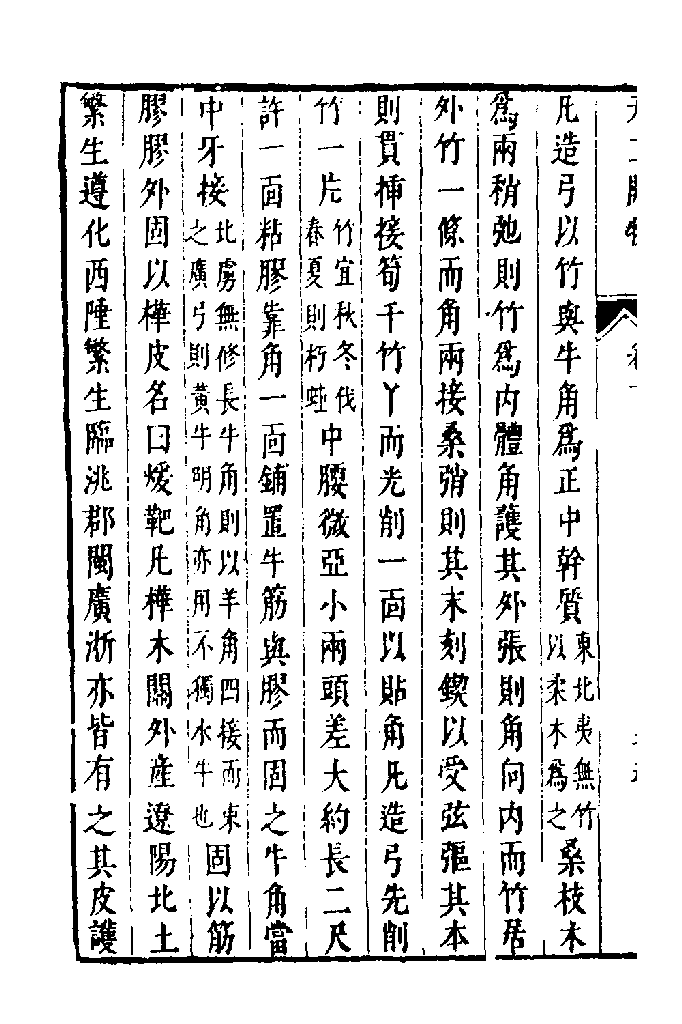 凡造弓以竹與牛角為正中幹質東北夷無竹以柔木為之桑枝木
為兩稍弛則竹為內體角護其外張則角向內而竹居
外竹一條而角兩接桑弰則其末刻鍥以受弦彄其本
則貫揷接筍于竹丫而光削一面以貼角凡造弓先削
竹一片竹宜秋冬伐春夏則朽蛀中腰微亞小兩頭差大約長二尺
許一面粘膠靠角一面鋪置牛筋與膠而固之牛角當
中牙接北虜無修長牛角則以羊角四接而束之廣弓則黃牛明角亦用不獨水牛也固以筋
膠膠外固以樺皮名曰煖靶凡樺木關外產遼陽北土
繁生遵化西陲繁生臨洮郡閩廣浙亦皆有之其皮護